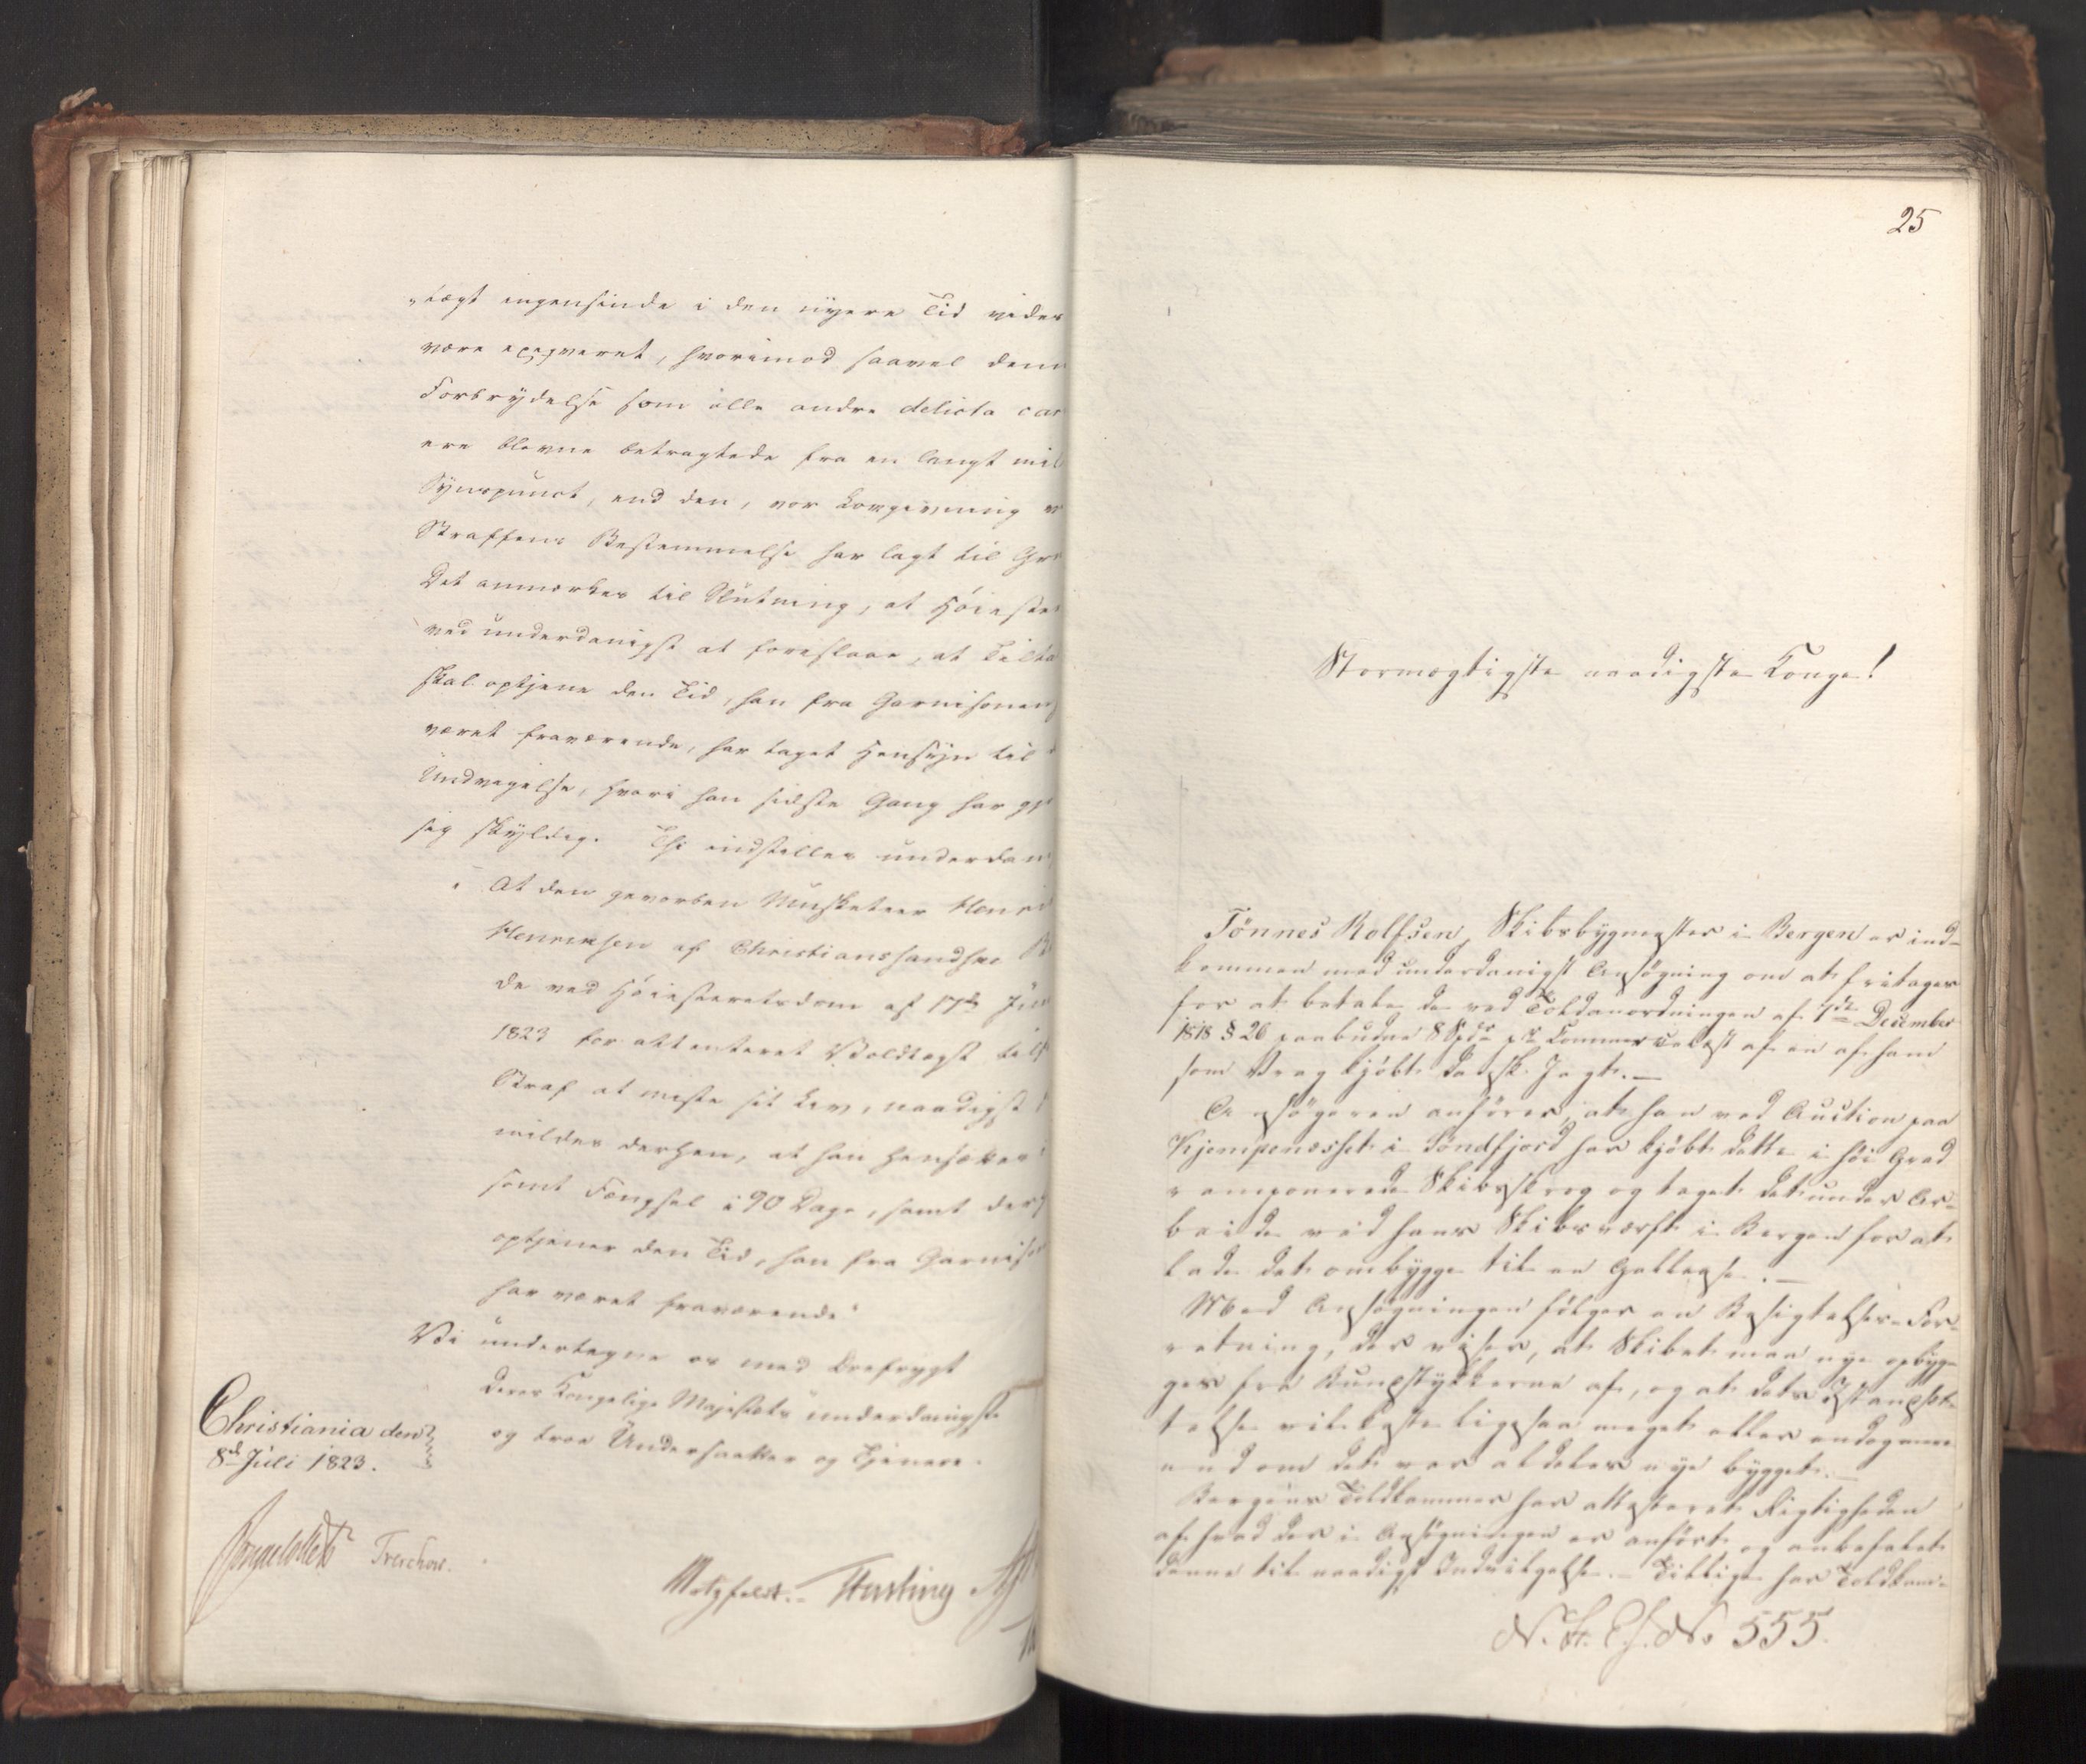 „tægt ingensinde i den nyere Tid vides
være exeqveret, hvorimod saavel denn
Forbrydelse som alle andre delicta car
ere blevne betragtede fra en langt mil
Synspunct, end den, vor Lovgivning v
Straffens Bestemmelse har lagt til Gr
Det anmærkes til Slutning, at Høieste
ved underdanigst at foreslaae, at Tilta
skal optjene den Tid, han fra Garnisonen
været fraværende, har taget Hensyn til
Undvigelse, hvori han sidste Gang har gj
sig skyldig. Thi indstilles underdan
"At den gevorben Musketeer Henri
Henriksen af Christianssandske B
de ved Høiesteretsdom af 17de Jun
1823 for attenteret Voldtægt til
Straf at miste sit Liv, naadigst
mildes derhen, at han hensættes
somt Fængsel i 90 Dage, samt der
optjener den Tid, han fra Garniso
har været fraværende"
Vi undertegne os med Ærefrygt
Deres Kongelige Majestæts underdanigste
og troe Undersaatter og Tjenere.
Christiania den
8de Juli 1823.
Treschow.
Motzfeldt. Fasting
25
Stormægtigste naadigste Konge!
Tönnes Rolfsen, Skibsbygmester i Bergen er ind-
kommen med underdanigst Ansøgning om at fritages
for at betale de ved Toldanordningen af 7de December
1818 § 26 paabudne 8 Spdr pr Commercelæst af en af ham
som Vrag kjøbt dansk Jagt.—
Ansøgeren anfører, at han ved Auction paa
Kjempenæsset i Søndfjord har kjøbt dette i høi Grad
ramponerede Skibsskrog og taget det under Ar-
beide ved hans Skibsværft i Bergen for at
lade det ombygge til en Gallease.—
Med Ansøgningen følger en Besigtelses-For-
retning, der viser, at Skibet maa nye opbyg-
ges fra Bundstykkerne af, og at dets Istandsæt-
telse vil koste ligesaa meget eller endog mere
end om det var aldeles nye bygget.—
Bergens Toldkammer har attesteret Rigtigheden
af hvad der i Ansøgningen er anført og anbefalet
denne til naadigst Indvilgelse.— Tillige har Toldkam-
No 555.